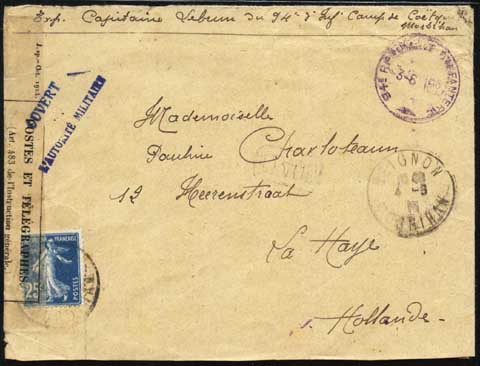 Exp. Capitaine Lebrun du 94e d'Inf Camp de Coëtq
Morbihan
OUVERT
L'AUTORITÉ MILITAIRE
94e RÉGIMENT D'INFANTERIE
3-6
Mademoiselle
Pauline Charloteaun
12 Heerenstraat
La Haye
Hollande
GUIGNON
MORBIHAN
POSTES ET TÉLÉGRAPHES
(Art. 483 de l'Instruction générale.)
FRANÇAISE
POSTES
25